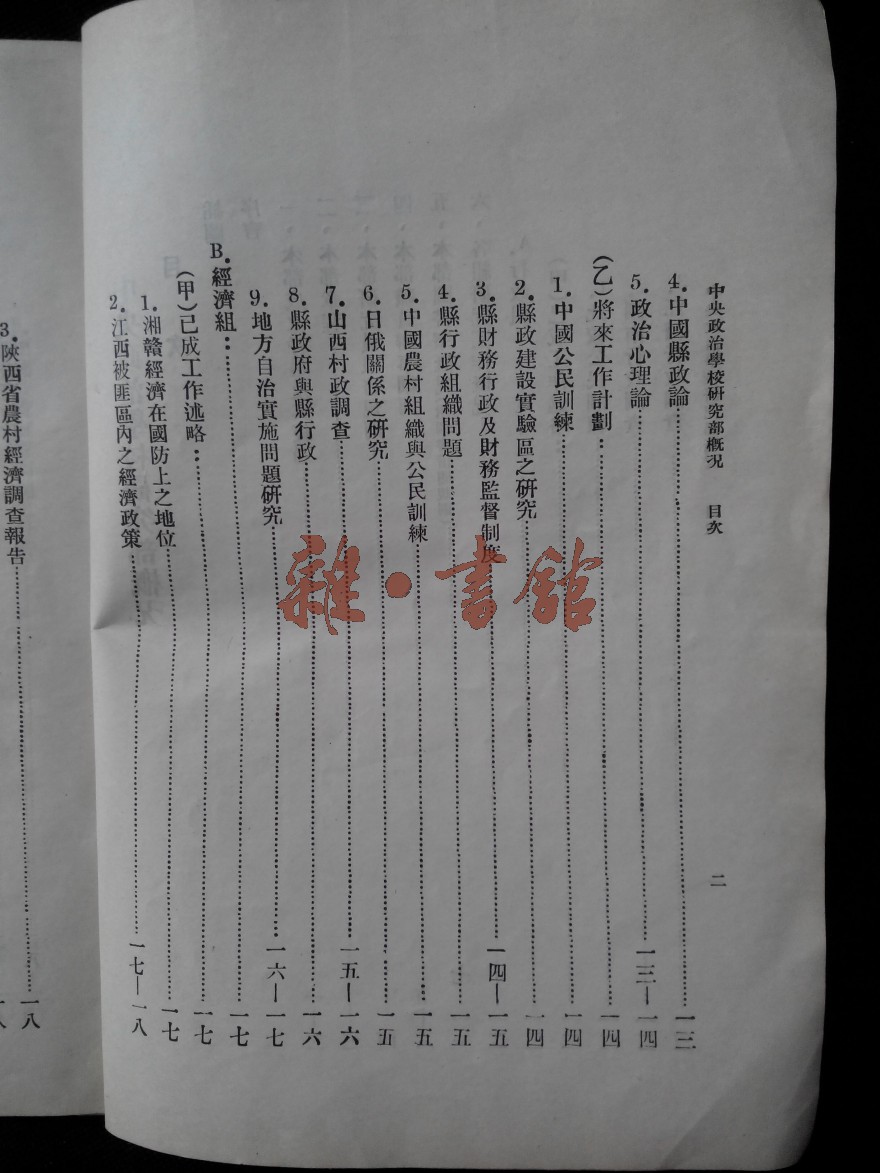 中央政治學校研究部概況 目次 二
4.中國縣政論……一三
5.政治心理論……一三—一四
(乙)將來工作計劃:……一四
1.中國公民訓練……一四
2.縣政建設實驗區之研究……一四
3.縣財務行政及財務監督制度……一四—一五
4.縣行政組織問題……一五
5.中國農村組織與公民訓練……一五
6.日俄關係之研究……一五
7.山西村政調查……一五—一六
8.縣政府與縣行政……一六
9.地方自治實施問題研究……一六—一七
B.經濟組:……一七
(甲)已成工作述略:……一七
1.湘贛經濟在國防上之地位……一七
2.江西被匪區內之經濟政策……一七—一八
3.陝西省農村經濟調查報告……一八
雜·書館